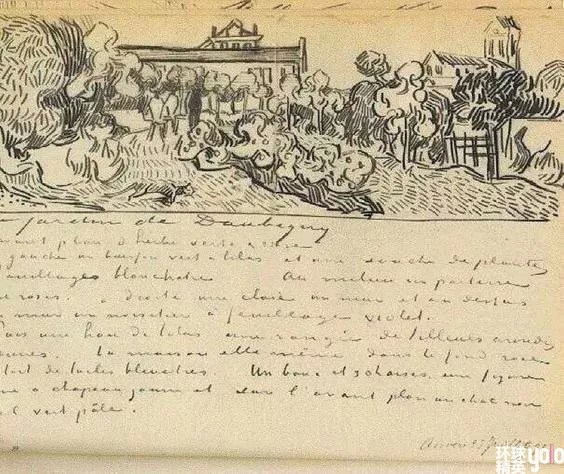 jardin de Daubigny
avant plan d'herbe verte & rose
gauche un buisson vert & lilas et une souche de plantes
feuillages blanchatre Au milieu un parterre
de roses. à droite une claie un mur et au dessus
mur un noisetier à feuillage violet.
une haie de lilas une rangée de tilleuls arrondis
jaunes. La maison elle même dans le fond rose
toit de tuiles bleuatres. Un banc et 3 chaises, une figure
à chapeau jaune et sur l'avant plan un chat noir
vert pâle.
环球
精英